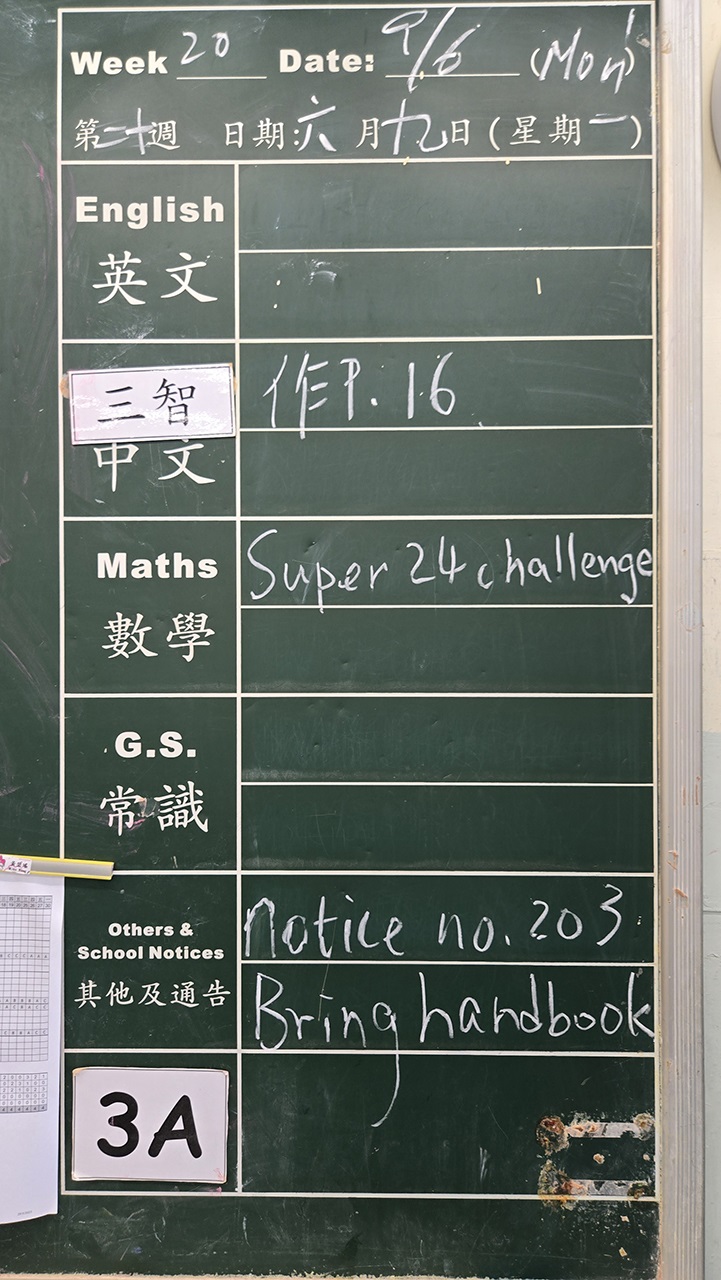 Week 20 Date: 9/6 (Mon)
第二十週 日期:六月九日(星期一)
English
英文
三智
作P. 16
中文
Maths
Super 24 challenge
數學
G.S.
常識
Others &
School Notices
其他及通告
Notice no. 203
Bring handbook
3A